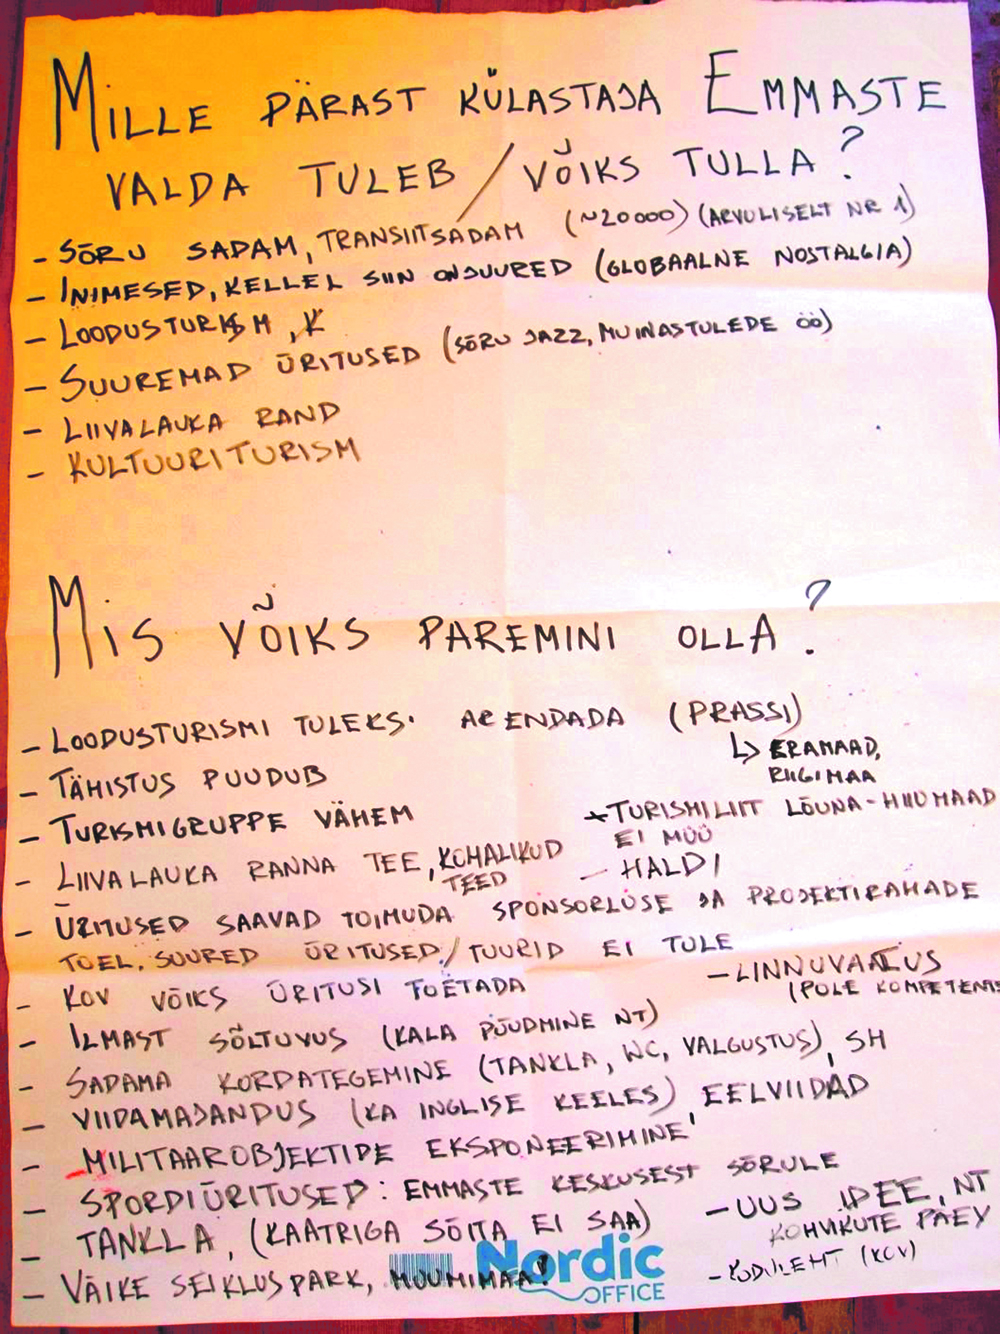 MILLE PÄRAST KÜLASTAJA EMMASTE
VALDA TULEB / VÕIKS TULLA?
- SÕRU SADAM, TRANSIITSADAM (~20000) (ARVULISELT NR 1)
- INIMESED, KELLEL SIIN ON JUURED (GLOBAALNE NOSTALGIA)
- LOODUSTURISM, K
- SUUREMAD ÜRITUSED (SÕRU JAZZ, MUINASTULEDE ÖÖ)
- LIIVALAUKA RAND
- KULTUURITURISM
MIS VÕIKS PAREMINI OLLA?
- LOODUSTURISMI TULEKS ARENDADA (PRASSI)
↳ ERAMAAD,
RIIGIMAA
- TÄHISTUS PUUDUB
- TURISMIGRUPPE VÄHEM
* TURISMILIIT LÕUNA-HIIUMAAD
EI MÜÜ
- LIIVALAUKA RANNA TEE, KOHALIKUD
TEED
- HALDI
- ÜRITUSED SAAVAD TOIMUDA SPONSORLUSE JA PROJEKTIRAHADE
TOEL. SUURED ÜRITUSED / TUURID EI TULE
- KOV VÕIKS ÜRITUSI TOETADA
- LINNUVAATLUS
(POLE KOMPETENTS
- ILMAST SÕLTUVUS (KALA PÜÜDMINE NT)
- SADAMA KORDATEGEMINE (TANKLA, WC, VALGUSTUS), SH
- VIIDAMAJANDUS (KA INGLISE KEELES), EELVIIDAD
- MILITAAROBJEKTIDE EKSPONEERIMINE
- SPORDIÜRITUSED: EMMASTE KESKUSEST SÕRULE
- TANKLA, (KAATRIGA SÕITA EI SAA)
- UUS IDEE, NT
KOHVIKUTE PÄEV
- VÄIKE SEIKLUSPARK, MUUMIMAA!
- KODULEHT (KOV)
Nordic
OFFICE